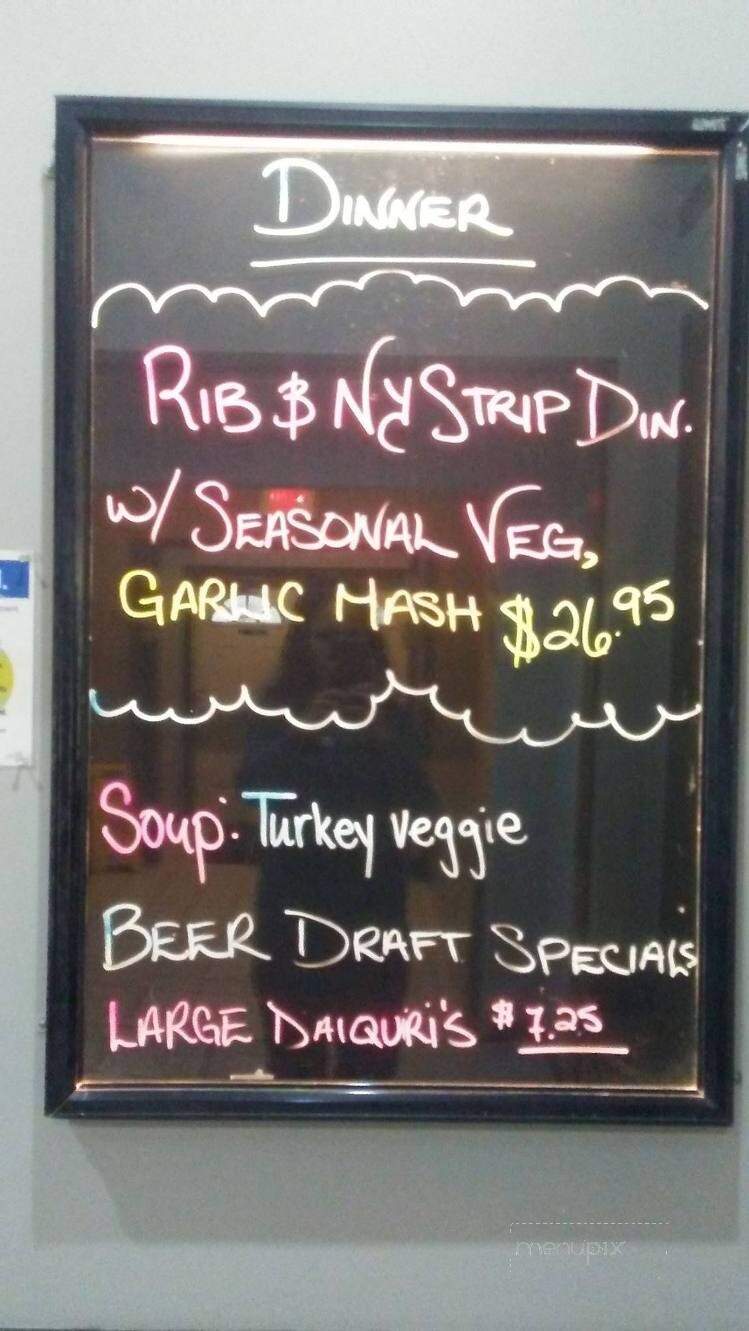 DINNER
RIB & NY STRIP DIN.
W/ SEASONAL VEG,
GARLIC MASH $26.95
Soup: Turkey veggie
BEER DRAFT SPECIALS
LARGE DAIQURI'S $7.25
menupix